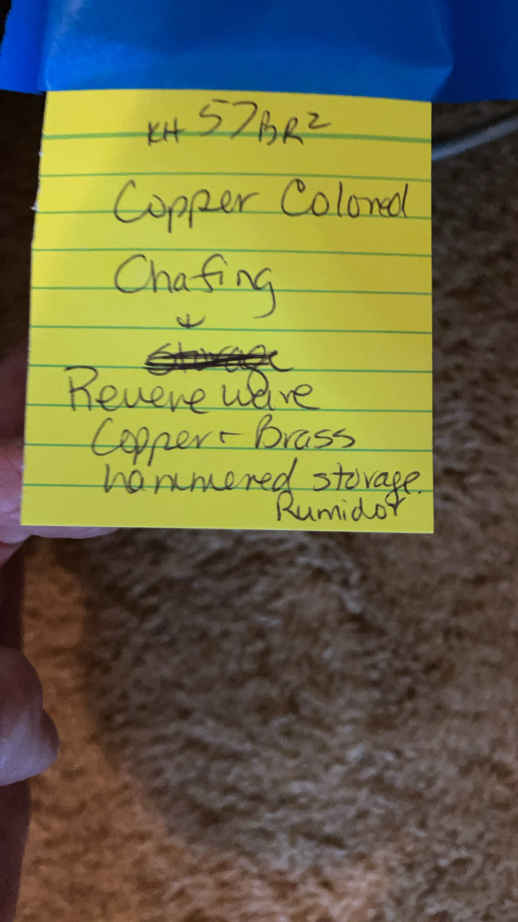 KH 57BR2
Copper Colored
Chafing
↓
storage
Revere ware
Copper + Brass
hammered storage.
Rumidor